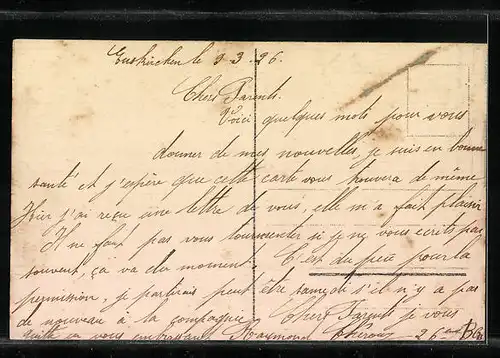 Euskirchen le 3.3.26.
Chers Parents.
Voici quelques mots pour vous
donner de mes nouvelles, je suis en bonne
santé et j'espère que cette carte vous trouvera de même
Hier j'ai reçu une lettre de vous, elle m'a fait plaisir
Il ne faut pas vous tourmenter si je ne vous ecrits pas
souvent, ça va du moment, C'est du peu pour la
permission, je partirais peut être samedi s'il n'y a pas
de nouveau à la compagnie, Chers Parents je vous
quitte en vous embrassant Raymond 26